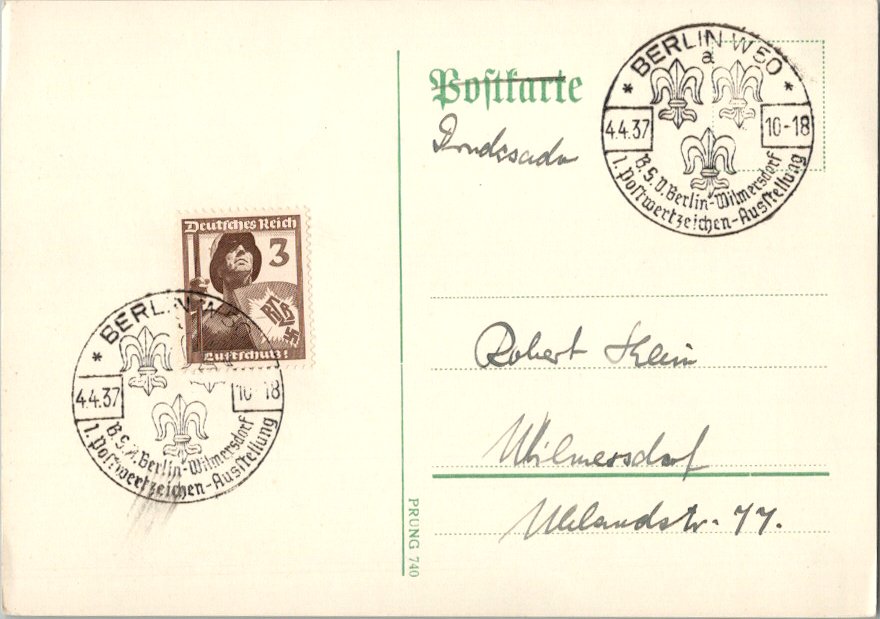 Postkarte
Drucksache
BERLIN W 50
a
4.4.37
10-18
B.S.V. Berlin-Wilmersdorf
1. Postwertzeichen-Ausstellung
Deutsches Reich
3
RLB
Luftschutz!
BERLIN W 50
4.4.37
10-18
B.S.V. Berlin-Wilmersdorf
1. Postwertzeichen-Ausstellung
Robert Klein
Wilmersdorf
Uhlandstr. 77.
PRUNG 740